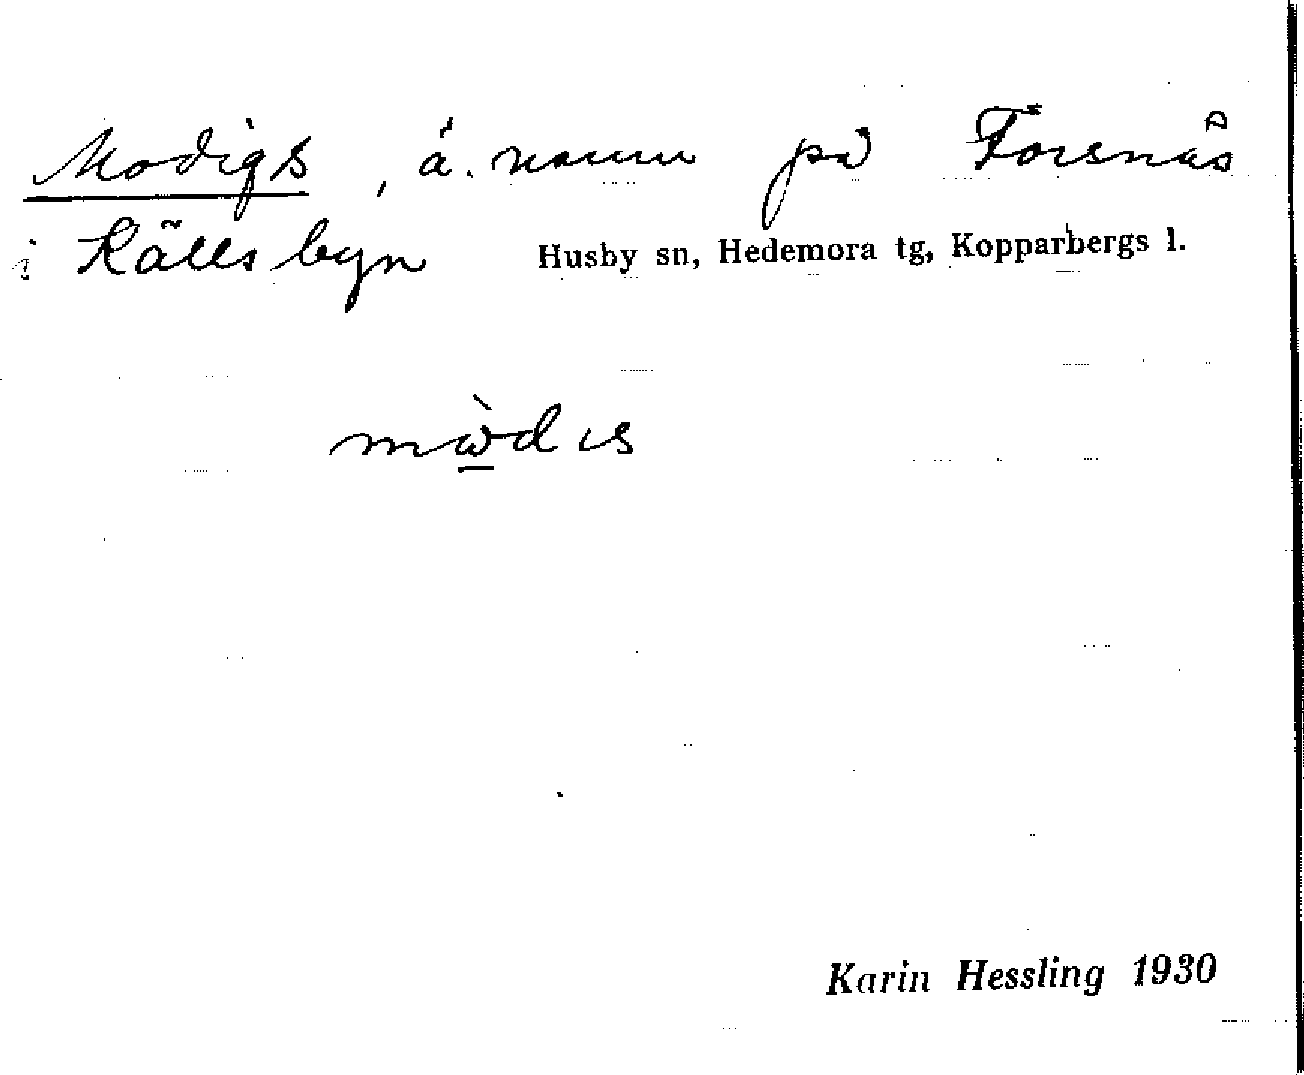 Modigs, å. namn på Forsnäs
i Källsbyn Husby sn, Hedemora tg, Kopparbergs l.
mὼdɩs
Karin Hessling 1930